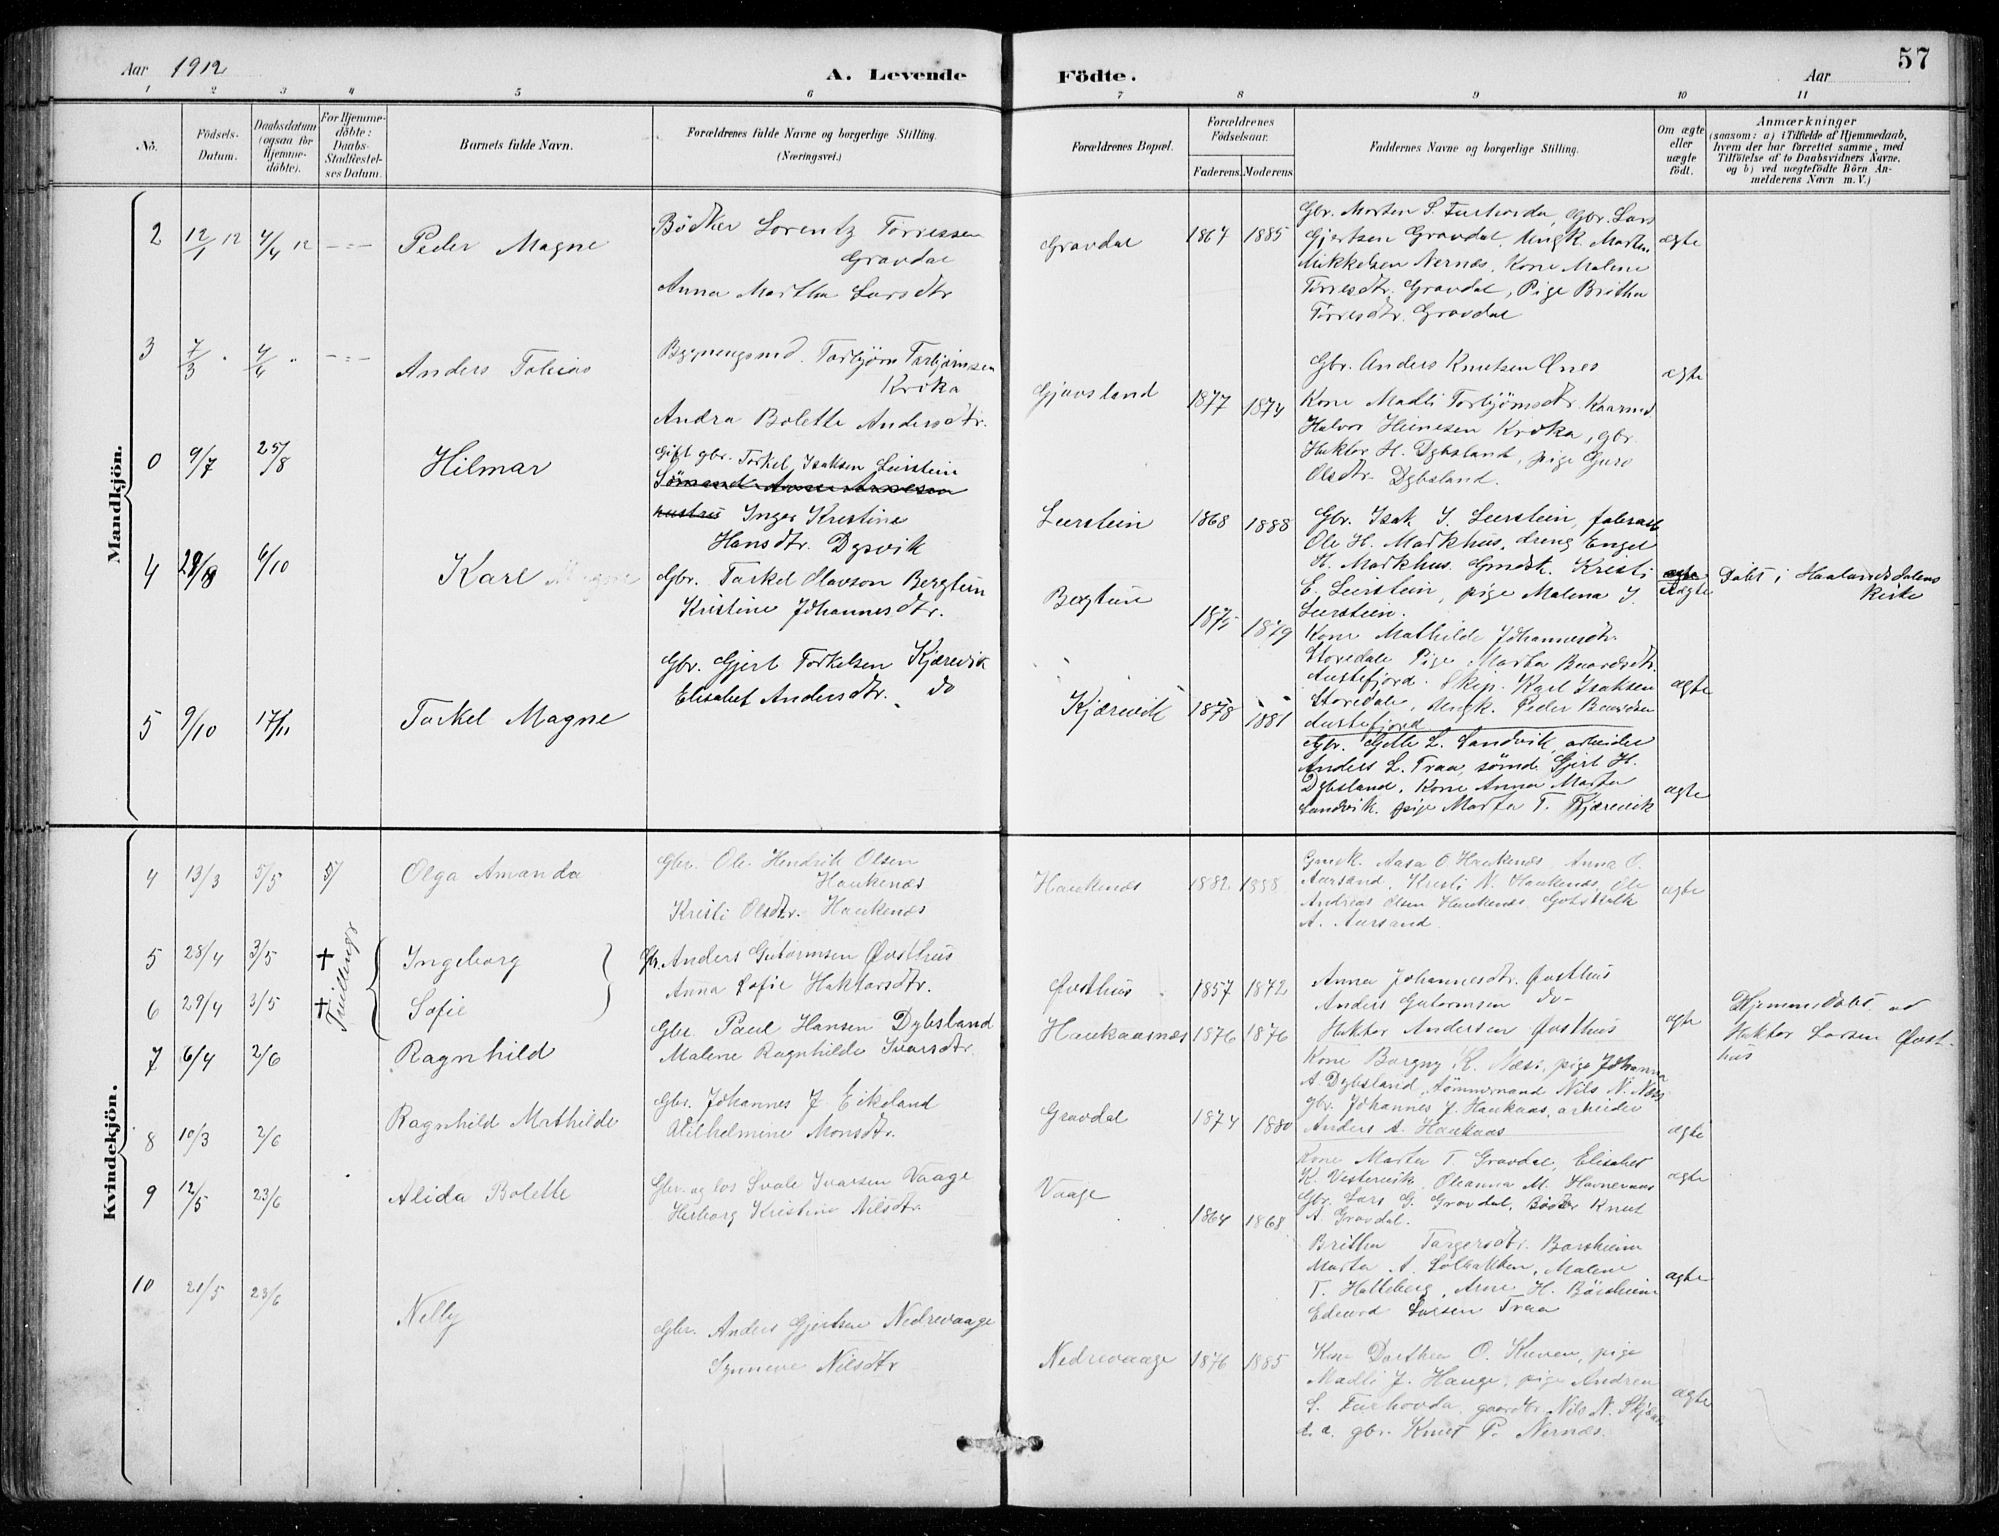 Aar 1912
A. Levende Födte.
Aar
57
1 2 3 4 5 6 7 8 9 10 11
No.
Födsels-Datum.
Daabsdatum (ogsaa for Hjemme-döbte).
For Hjemme-döbte: Daabs-Stadfæstel-ses Datum.
Barnets fulde Navn.
Forældrenes fulde Navne og borgerlige Stilling. (Næringsvei.)
Forældrenes Bopæl.
Forældrenes Födselsaar.
Faderens. Moderens.
Faddernes Navne og borgerlige Stilling.
Om ægte eller uægte födt.
Anmærkninger
(saasom: a) i Tilfælde af Hjemmedaab,
hvem der har forrettet samme, med
Tilföielse af to Daabsvidners Navne,
og b) ved uægtefödte Börn An-
melderens Navn m. V.)
Mandkjön.
2 12/1 12 4/4 12 -"- Peder Magne
Bødker Lorentz Tørressen
Gravdal
Anna Martha Larsdtr
Gravdal 1867 1885
Gbr. Morten S. Furhovda, Gbr. Lars
Gjertsen Gravdal, Ungk. Morten
Mikkelsen Nernæs, Kone Malene
Tørresdtr. Gravdal, Pige Britha
Tørresdtr. Gravdal
ægte
3 7/3 " 4/4 " -"- Anders Tobias
Bygningssmd. Torbjørn Torbjørnssen
Kroka
Andra Bolette Andersdtr.
Gjuvsland 1877 1874
Gbr. Anders Knutsen Ones
Kone Madli Torbjørnsdtr. Kaarevi
Halvor Heinesen Kroka, gbr.
Haktor H. Dybsland, pige Guro
Olsdtr. Dybsland.
ægte
0 9/7 25/8 Hilmar
Gift gbr. Torkel Isaksen Leirstein
hustru Inger Kristine
Hansdtr. Dysvik
Leirstein 1868 1888
Gbr. Isak I. Leirstein,
Ole H. Markhus, dreng Engel
H. Markhus, Gmdsk. Kristi
E. Leirstein, pige Malena I.
Leirstein.
ægte
4 29/8 6/10 Karl Magne
Gbr. Torkel Olavson Bergtun
Kristine Johannesdtr.
Bergtun 1875 1879
Kone Mathilde Johannesdtr.
Storedale Pige Marta Baardsdtr.
Austefjord. Skip. Karl Isaksen
Storedale, Ungk. Peder Baardsen
Austefjord
Ægte Døbt i Haalandsdalens
Kirke
5 9/10 17/11 Torkel Magne
Gbr. Gjert Torkelsen Kjærevik
Elisabet Andersdtr. do
Kjærevik 1878 1881
Gbr. Gjette L. Sandvik, arbeider
Anders L. Traa, sømd. Gjert H.
Dybsland, Kone Anna Marta
Sandvik, pige Marta T. Kjærevik
ægte
ægte
Kvindekjön.
4 13/3 5/5 5/ Olga Amanda
Gbr. Ole Hendrik Olsen
Haukenæs
Kristi Olsdtr. Haukenæs
Haukenæs 1882 1888
Gmsk. Aasa O. Haukenæs, Anna O.
Aarsand, Kristi N. Haukenæs, Ole
Andreas Olsen Haukenæs, Gotskalk
A. Aarsand.
ægte
Tvillinger
5 28/4 3/5 † Ingeborg
6 29/4 3/5 † Sofie
Gbr. Anders Gutormsen Øvsthus
Anna Sofie Haktorsdtr.
Øvsthus 1857 1872
Anna Johannesdtr. Øvsthus
Anders Gutormsen do-
Haktor Andersen Øvsthus
ægte
Hjemmedøbt af
Haktor Larsen Øvst-
hus
7 6/4 2/6 Ragnhild
Gbr. Paul Hansen Dybsland
Malene Ragnhilde Ivarsdtr.
Haukaasnæs 1876 1876
Kone Borgny K. Næss, pige Johanna
A. Dybsland, Tømmermand Nils N. Næss
gbr. Johannes J. Haukaas, arbeider
Anders A. Haukaas
ægte
8 10/3 2/6 Ragnhild Mathilde
Gbr. Johannes J. Eikeland
Wilhelmine Monsdtr.
Gravdal 1874 1880
Kone Marta T. Gravdal, Elisabet
K. Vestervik, Oleanna M. Havneraas
Gbr. Lars G. Gravdal, Bødker Knut
A. Gravdal.
ægte
9 12/5 23/6 Alida Bolette
Gbr. og los Svale Ivarsen Vaage
Herborg Kristine Nilsdtr.
Vaage 1864 1868
Britha Torgersdtr. Borsheim
Marta A. Solbakken, Malene
T. Hatteberg, Arne H. Børsheim
Edvard Larsen Traa
ægte
10 21/5 23/6 Nelly
Gbr. Anders Gjertsen Nedrevaage
Synneve Nilsdtr
Nedrevaage 1876 1885
Kone Dorthea O. Kuven, pige
Madli J. Hauge, pige Andrea
S. Furhovda, gaardbr. Nils N. Skjelnes
t.a. gbr. Knut P. Nernæs.
ægte